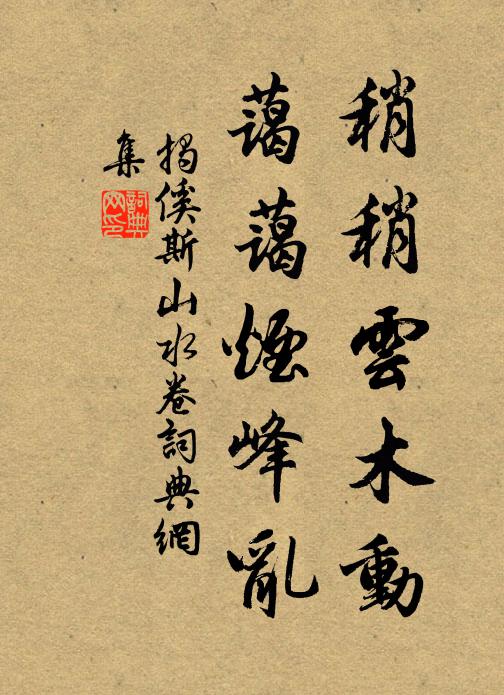 稍稍雲木動
藹藹煙峰亂
揭傒斯山水卷詞典網
集
詞典网印